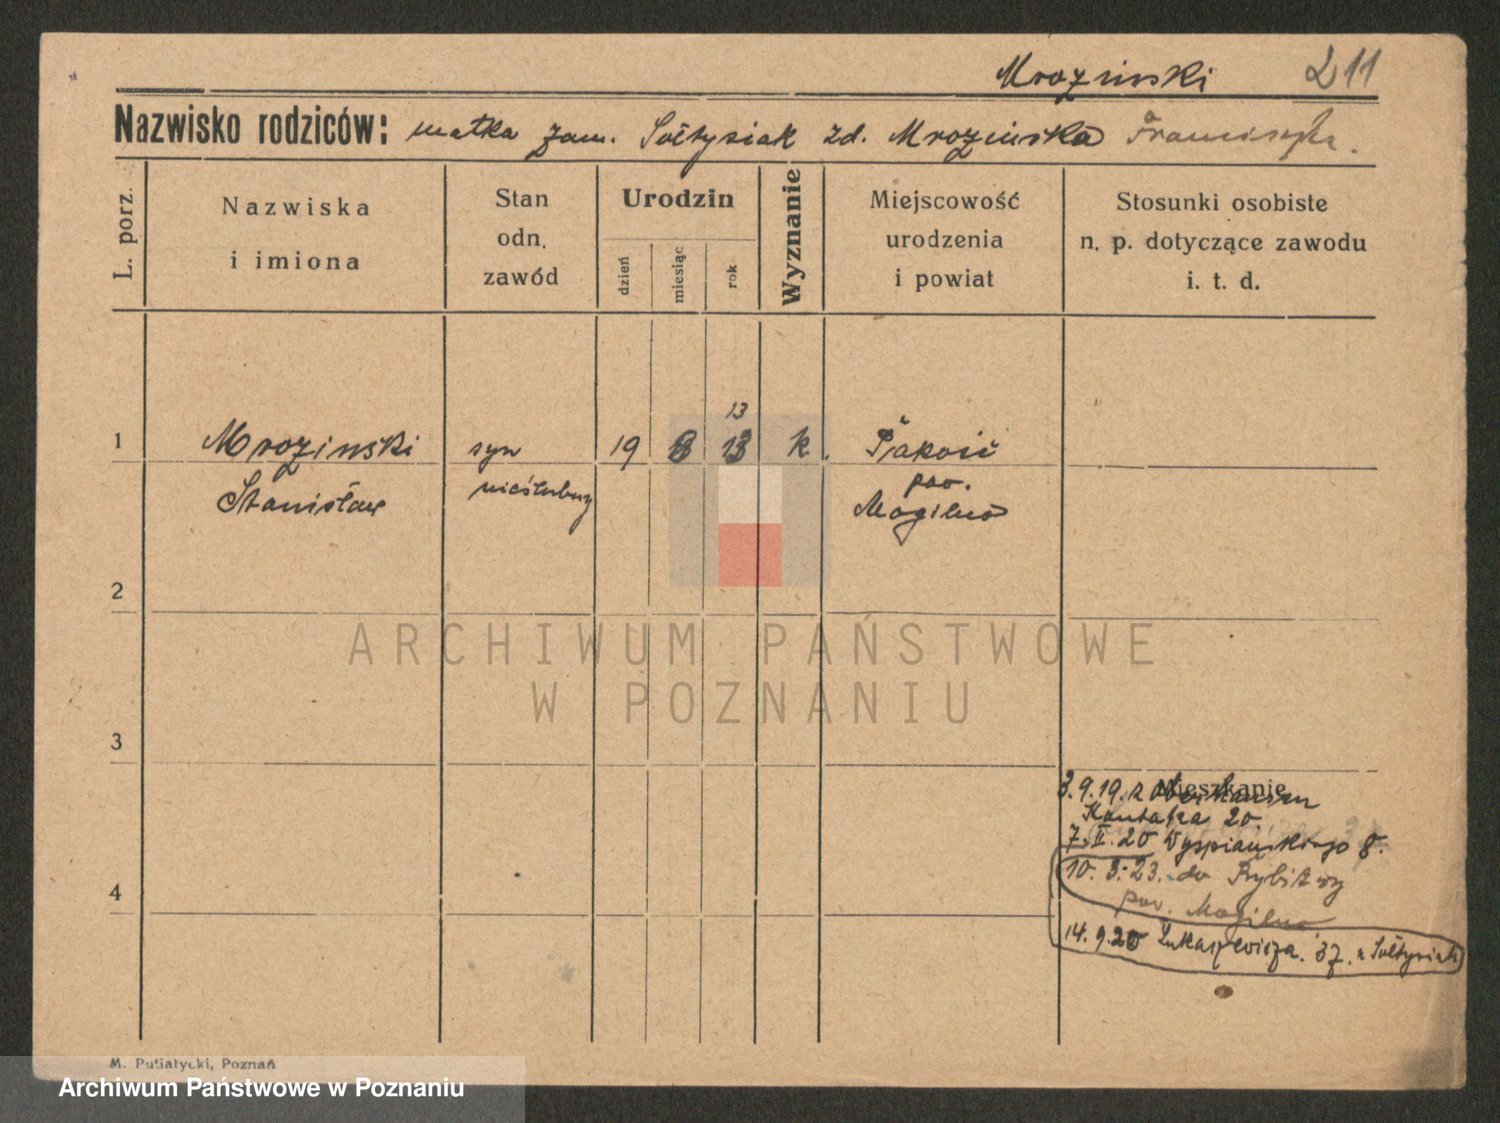 Mrozinski 211
Nazwisko rodziców: matka zam. Sołtysiak zd. Mrozinska Franciszka.
L. porz.
Nazwiska
i imiona
Stan
odn.
zawód
Urodzin
dzień
miesiąc
rok
Wyznanie
Miejscowość
urodzenia
i powiat
Stosunki osobiste
n. p. dotyczące zawodu
i. t. d.
13
1 Mrozinski syn 19 8 13 k. Pakość
Stanisław nieślubny pow.
Mogilno
2
3
4
Mieszkanie
3.9.19. z Oberhausen
Kantaka 20
7.II.20 Wyspianskiego 8.
10.3.23. do Rybitwy
pow. Mogilno
14.9.20 Łukaszewicza. 37. u Sołtysiak
ARCHIWUM PAŃSTWOWE
W POZNANIU
M. Putiatycki, Poznań
Archiwum Państwowe w Poznaniu